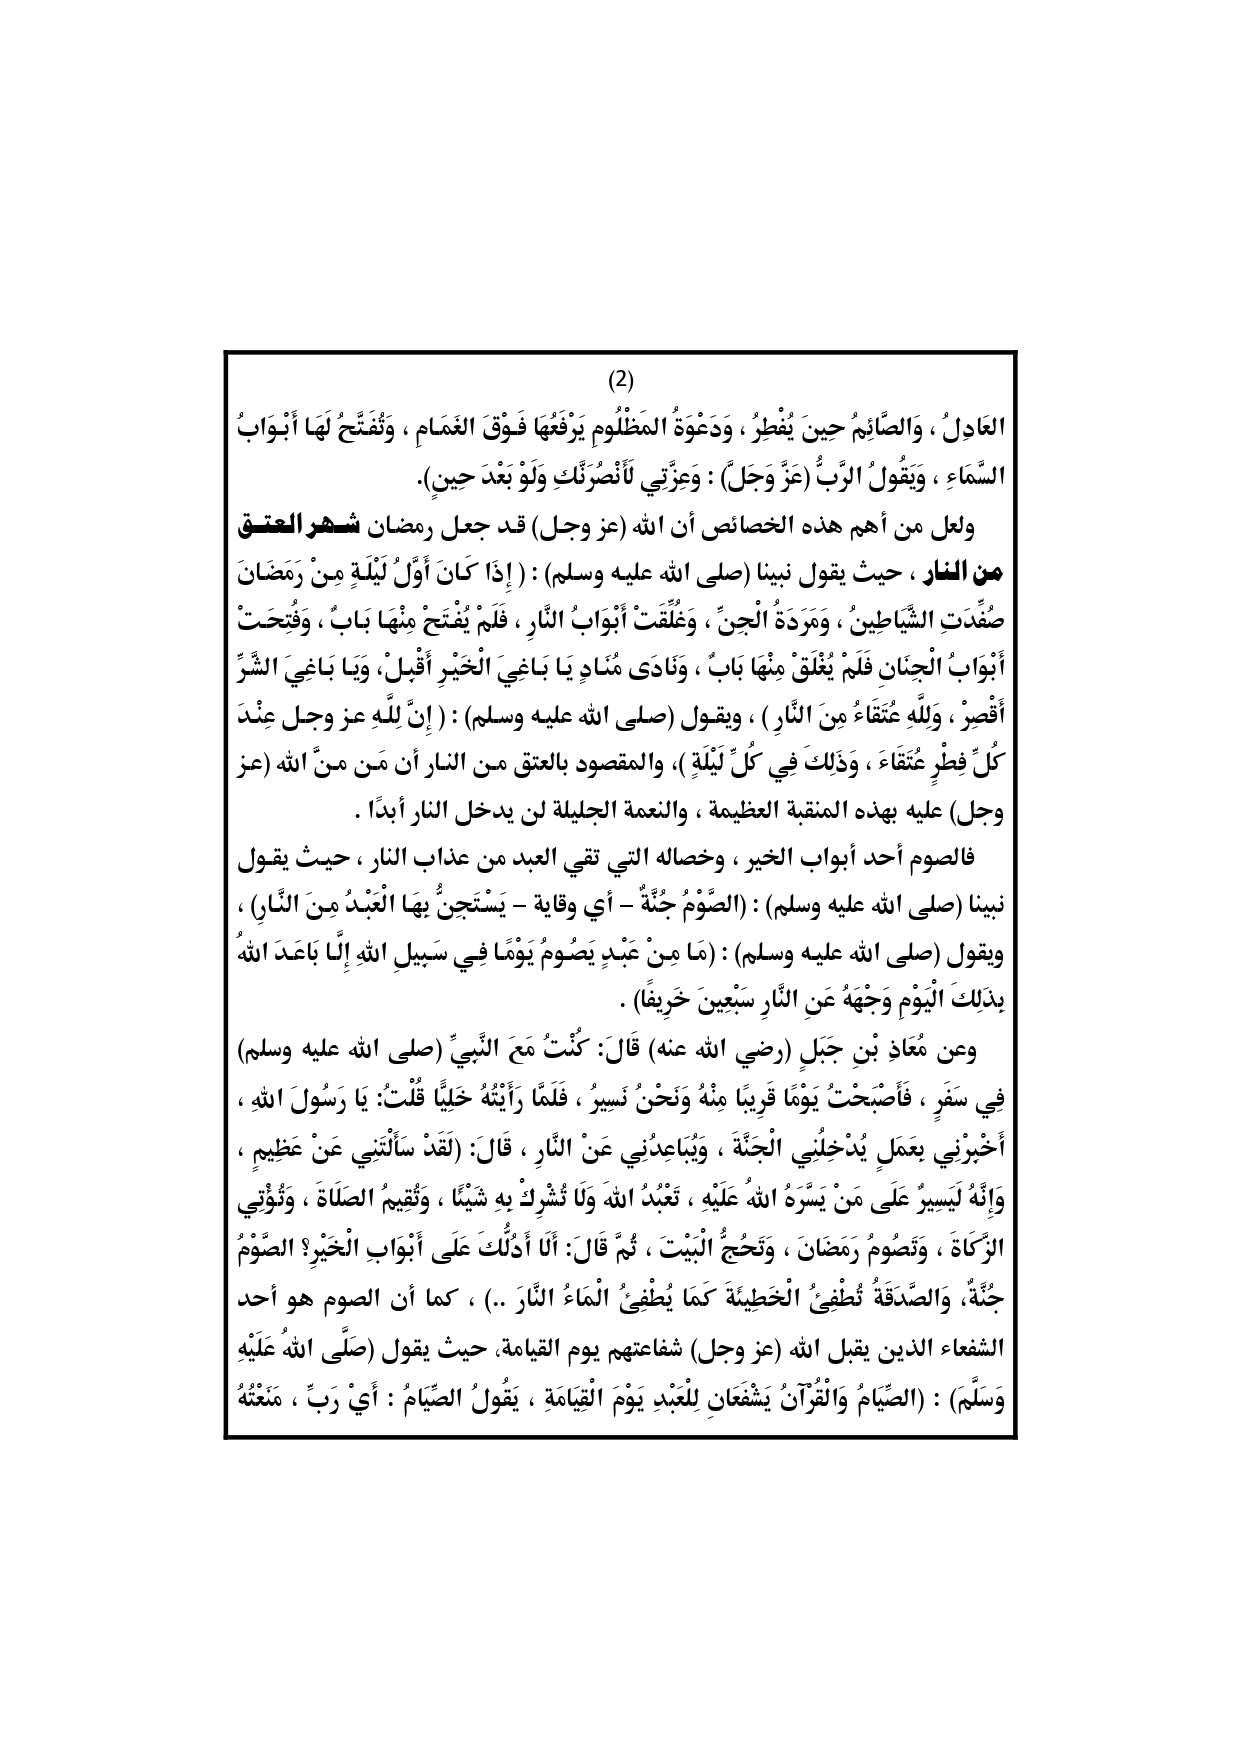 (2)
العَادِلُ ، وَالصَّائِمُ حِينَ يُفْطِرُ ، وَدَعْوَةُ المَظْلُومِ يَرْفَعُهَا فَوْقَ الغَمَامِ ، وَتُفَتَّحُ لَهَا أَبْوَابُ
السَّمَاءِ ، وَيَقُولُ الرَّبُّ (عَزَّ وَجَلَّ) : وَعِزَّتِي لَأَنْصُرَنَّكِ وَلَوْ بَعْدَ حِينٍ).
ولعل من أهم هذه الخصائص أن الله (عز وجل) قد جعل رمضان شهر العتق
من النار ، حيث يقول نبينا (صلى الله عليه وسلم) : ( إِذَا كَانَ أَوَّلُ لَيْلَةٍ مِنْ رَمَضَانَ
صُفِّدَتِ الشَّيَاطِينُ ، وَمَرَدَةُ الْجِنِّ ، وَغُلِّقَتْ أَبْوَابُ النَّارِ ، فَلَمْ يُفْتَحْ مِنْهَا بَابٌ ، وَفُتِحَتْ
أَبْوَابُ الْجِنَانِ فَلَمْ يُغْلَقْ مِنْهَا بَابٌ ، وَنَادَى مُنَادٍ يَا بَاغِيَ الْخَيْرِ أَقْبِلْ، وَيَا بَاغِيَ الشَّرِّ
أَقْصِرْ ، وَلِلَّهِ عُتَقَاءُ مِنَ النَّارِ ) ، ويقول (صلى الله عليه وسلم) : ( إِنَّ لِلَّهِ عز وجل عِنْدَ
كُلِّ فِطْرٍ عُتَقَاءَ ، وَذَلِكَ فِي كُلِّ لَيْلَةٍ )، والمقصود بالعتق من النار أن مَن منَّ الله (عز
وجل) عليه بهذه المنقبة العظيمة ، والنعمة الجليلة لن يدخل النار أبدًا .
فالصوم أحد أبواب الخير ، وخصاله التي تقي العبد من عذاب النار ، حيث يقول
نبينا (صلى الله عليه وسلم) : (الصَّوْمُ جُنَّةٌ – أي وقاية – يَسْتَجِنُّ بِهَا الْعَبْدُ مِنَ النَّارِ) ،
ويقول (صلى الله عليه وسلم) : (مَا مِنْ عَبْدٍ يَصُومُ يَوْمًا فِي سَبِيلِ اللهِ إِلَّا بَاعَدَ اللهُ
بِذَلِكَ الْيَوْمِ وَجْهَهُ عَنِ النَّارِ سَبْعِينَ خَرِيفًا) .
وعن مُعَاذِ بْنِ جَبَلٍ (رضي الله عنه) قَالَ: كُنْتُ مَعَ النَّبِيِّ (صلى الله عليه وسلم)
فِي سَفَرٍ ، فَأَصْبَحْتُ يَوْمًا قَرِيبًا مِنْهُ وَنَحْنُ نَسِيرُ ، فَلَمَّا رَأَيْتُهُ خَلِيًّا قُلْتُ: يَا رَسُولَ اللهِ ،
أَخْبِرْنِي بِعَمَلٍ يُدْخِلُنِي الْجَنَّةَ ، وَيُبَاعِدُنِي عَنْ النَّارِ ، قَالَ: (لَقَدْ سَأَلْتَنِي عَنْ عَظِيمٍ ،
وَإِنَّهُ لَيَسِيرٌ عَلَى مَنْ يَسَّرَهُ اللهُ عَلَيْهِ ، تَعْبُدُ اللهَ وَلَا تُشْرِكْ بِهِ شَيْئًا ، وَتُقِيمُ الصَلَاةَ ، وَتُؤْتِي
الزَّكَاةَ ، وَتَصُومُ رَمَضَانَ ، وَتَحُجُّ الْبَيْتَ ، ثُمَّ قَالَ: أَلَا أَدُلُّكَ عَلَى أَبْوَابِ الْخَيْرِ؟ الصَّوْمُ
جُنَّةٌ، وَالصَّدَقَةُ تُطْفِئُ الْخَطِيئَةَ كَمَا يُطْفِئُ الْمَاءُ النَّارَ ..) ، كما أن الصوم هو أحد
الشفعاء الذين يقبل الله (عز وجل) شفاعتهم يوم القيامة، حيث يقول (صَلَّى اللهُ عَلَيْهِ
وَسَلَّمَ) : (الصِّيَامُ وَالْقُرْآنُ يَشْفَعَانِ لِلْعَبْدِ يَوْمَ الْقِيَامَةِ ، يَقُولُ الصِّيَامُ : أَيْ رَبِّ ، مَنَعْتُهُ